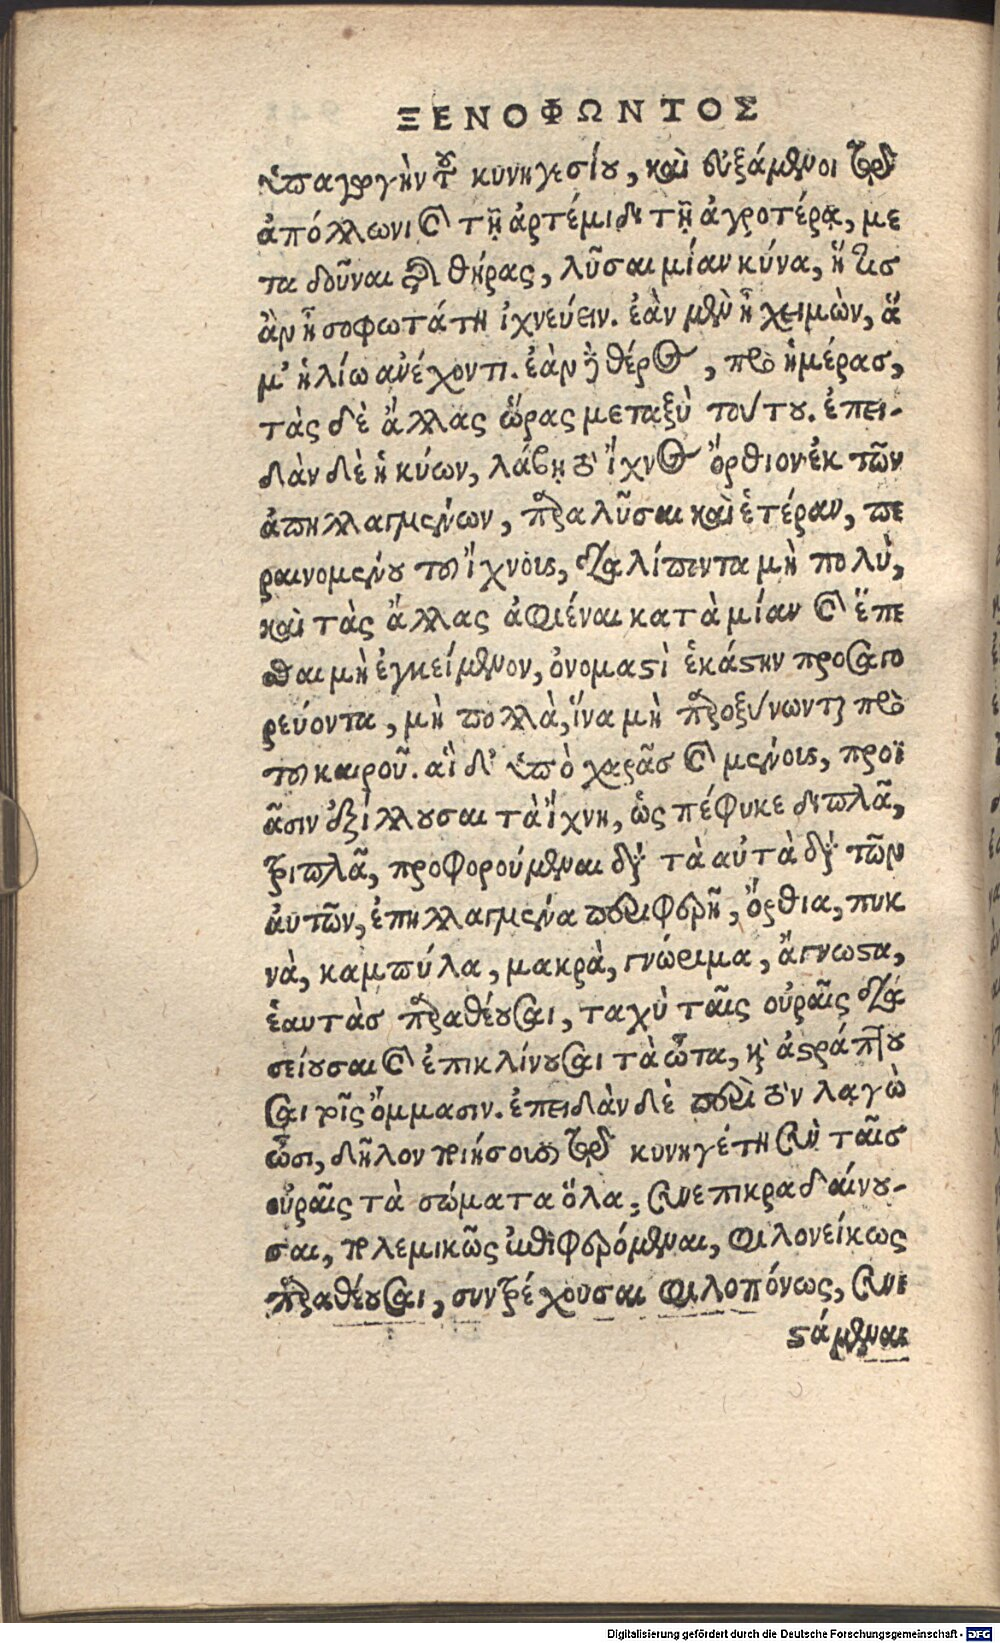 ΞΕΝΟΦΩΝΤΟΣ
ὑπαγωγὴν τοῦ κυνηγεσίου, καὶ εὐξάμενοι τῷ
ἀπόλλωνι καὶ τῇ ἀρτέμιδι τῇ ἀγροτέρᾳ, με
ταδοῦναι τῆς θήρας, λῦσαι μίαν κύνα, ἥτις
ἂν ᾖ σοφωτάτη ἰχνεύειν. ἐὰν μὲν ᾖ χειμὼν, ἅ
μ’ ἡλίῳ ἀνέχοντι. ἐὰν δὲ θέρος, πρὸ ἡμέρας,
τὰς δὲ ἄλλας ὥρας μεταξὺ τούτου. ἐπει-
δὰν δὲ ἡ κύων, λάβῃ τὸ ἴχνος ὄρθιον ἐκ τῶν
ἀπηλλαγμένων, παραλῦσαι καὶ ἑτέραν, πε
ραινομένου τοῦ ἴχνους, διαλίποντα μὴ πολὺ,
καὶ τὰς ἄλλας ἀφιέναι κατὰ μίαν καὶ ἕπε
σθαι μὴ ἐγκείμενον, ὀνομαστὶ ἑκάστην προσαγο
ρεύοντα, μὴ πολλὰ, ἵνα μὴ παροξύνωνται πρὸ
τοῦ καιροῦ. αἳ δ’ ὑπὸ χαρᾶς καὶ μένους, προΐ
ασιν ἐξίλλουσαι τὰ ἴχνη, ὡς πέφυκε διπλᾶ,
τριπλᾶ, προφορούμεναι παρὰ τὰ αὐτὰ διὰ τῶν
αὐτῶν, ἐπηλλαγμένα περιφερῆ, ὄρθια, πυκ
νὰ, καμπύλα, μακρὰ, γνώριμα, ἄγνωστα,
ἑαυτὰς παραθέουσαι, ταχὺ ταῖς οὐραῖς δια
σείουσαι καὶ ἐπικλίνουσαι τὰ ὦτα, καὶ ἀστράπτου
σαι τοῖς ὄμμασιν. ἐπειδὰν δὲ περὶ τὸν λαγὼ
ὦσι, δῆλον ποιήσουσι τῷ κυνηγέτῃ σὺν ταῖς
οὐραῖς τὰ σώματα ὅλα, συνεπικραδαίνου-
σαι, πολεμικῶς ἐπιφερόμεναι, φιλονείκως
παραθέουσαι, συντρέχουσαι φιλοπόνως, συνι
στάμεναι
Digitalisierung gefördert durch die Deutsche Forschungsgemeinschaft - DFG